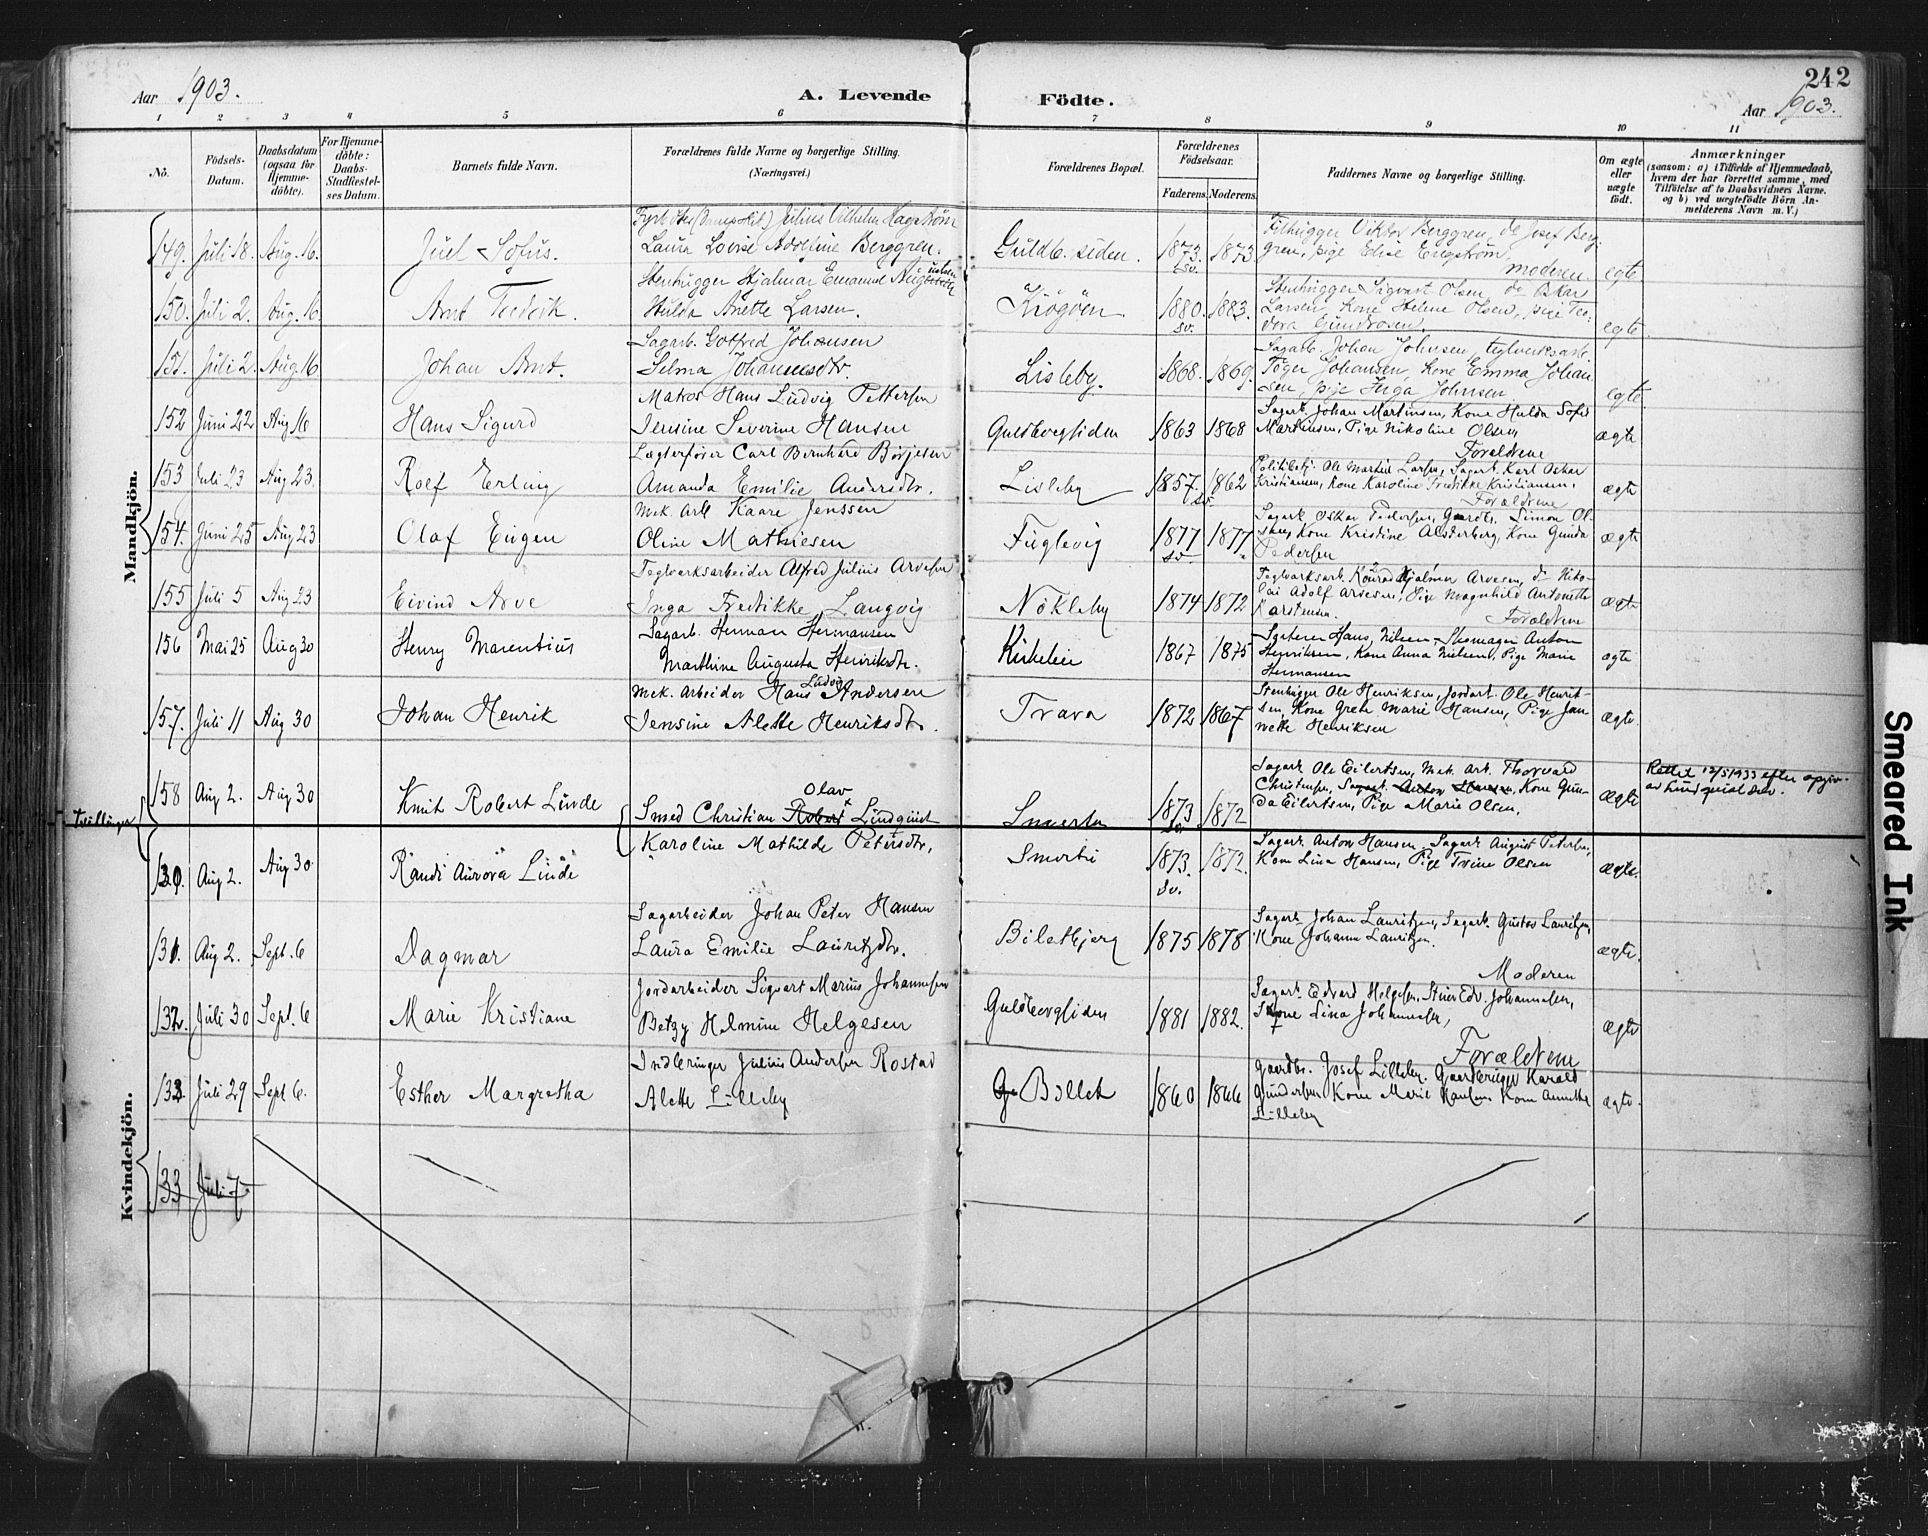 242
Aar 1903.
A. Levende Födte.
Aar 1903.
1 2 3 4 5 6 7 8 9 10 11
No.
Födsels-Datum.
Daabsdatum (ogsaa for Hjemme-döbte).
For Hjemme-döbte: Daabs-Stadfestel-ses Datum.
Barnets fulde Navn.
Forældrenes fulde Navne og borgerlige Stilling.
(Næringsvei.)
Forældrenes Bopæl.
Forældrenes Födselsaar.
Faderens. Moderens.
Faddernes Navne og borgerlige Stilling.
Om ægte eller uægte födt.
Anmærkninger
(saasom: a) i Tilfælde af Hjemmedaab,
hvem der har forrettet samme, med
Tilföielse af to Daabsvidners Navne.
og b) ved uægtefödte Börn An-
melderens Navn m. V.)
Mandkjön.
149. Juli 18. Aug. 16. Juel Sofus.
Julius Vilhelm Hagström
Laura Lovise Adolfine Berggren.
Guldb. siden. 1873. sv. 1873
Filhugger Viktor Berggren, do Josef Berg-
gren, pige Elise Engström,
moderen. egte
150. Juli 2. Aug. 16 Arnt Fredrik.
Stenhugger Hjalmar Emanuel
Hulda Anette Larsen.
Kiøgøen 1880. sv. 1883.
Stenhugger Sigvart Olsen, do Oskar
Larsen, Kone Helene Olsen, pige Teo-
dora Gundrosen. egte
151. Juli 2. Aug. 16 Johan Arnt.
Sagarb. Gotfred Johansen
Selma Johannesdtr.
Lisleby. 1868. 1869.
Sagarb. Johan Johnsen, teglverksarb.
Johansen, Kone Emma Johan
sen, pige Inga Johnsen egte.
152 Juni 22 Aug 16 Hans Sigurd
Matros Hans Ludvig Pettersen
Jensine Severine Hansen
Guldbergsiden 1863 1868
Sagarb. Johan Martinsen, Kone Hulda Sofie
Martinsen, Pige Nikoline Olsen,
Forældrene ægte
153 Juli 23 Aug 23. Rolf Erling
Lægterfører Carl Bernhard Börjesen
Amanda Emilie Andersdtr.
Lisleby 1857. sv. 1862
Politibetj. Ole Martin Larsen, Sagarb. Karl Oskar
Kristiansen, Kone Karoline Fredrikke Kristiansen,
Forældrene ægte
154. Juni 25 Aug 23 Olaf Eugen
Mek. Arb. Kaare Jenssen
Oline Mathiesen
Fuglevig 1877 sv. 1877
Sagarb. Oskar Pedersen, Gaardb. Simon Ol-
sen, Kone Kristine Alsterberg, Kone Gunda
Pedersen ægte
155 Juli 5 Aug 23 Eivind Arve
Teglverksarbeider Alfred Julius Arvesen
Inga Fredrikke Langvig
Nökleby 1874 1872
Teglverksarb. Konrad Hjalmar Arvesen, do Niko-
lai Adolf Arvesen, Pige Magnhild Antonette
Karstensen. Forældrene ægte
156 Mai 25 Aug 30 Henry Marentius
Sagarb. Herman Hermansen
Marthine Augusta Henriksdtr.
Kirkeleie 1867 1875
Sorterer Hans Nilsen, Skomager Anton
Henriksen, Kone Anna Nielsen, Pige Marie
Hermansen ægte
157. Juli 11 Aug 30 Johan Henrik
Mek. Arbeider Hans Ludvig Andersen
Jensine Alette Henriksdtr.
Trara 1872 1867
Stenhugger Ole Henriksen, Jordarb. Ole Henrik-
sen, Kone Grete Marie Hansen, Pige Jan-
nette Henriksen ægte.
Tvillinger
158 Aug 2. Aug 30 Knut Robert Linde
Olav
Smed Christian Robert Lindquist
Karoline Mathilde Petersdtr.
Smerta 1873 sv. 1872
Sagarb. Ole Eilertsen, Mek. Arb. Thorvard
Christensen, Sagarb. Anton Hansen, Kone Gun-
da Eilertsen, Pige Marie Olsen. ægte
Rettet 12/5 1933 efter opgiv.
Kvindekjön.
130. Aug 2. Aug 30 Randi Aurora Linde
Smerta 1873. sv. 1872.
Sagarb. Anton Hansen, Sagarb. August Petersen,
Kone Lina Hansen, Pige Trine Olsen ægte.
131. Aug 2. Sept. 6 Dagmar
Sagarbeider Johan Peter Hansen
Laura Emilie Lauritzdtr.
Biletbjerg 1875 1878
Sagarb. Johan Lauritzen, Sagarb. Gustav Lauritzen,
Kone Johanne Lauritzen.
Moderen ægte.
132. Juli 30 Sept. 6 Marie Kristiane
Jordarbeider Sigvart Marius Johannesen
Betzy Helmine Helgesen
Guldbergsiden 1881 1882.
Sagarb. Edvard Helgesen, Edv. Johannesen,
Kone Lina Johannesen,
Forældrene ægte
133. Juli 29 Sept 6. Esther Margretha
Inderinger Julius Andersen Rostad
Alette Lilleby
Bollet 1860 1866
Gaardbr. Josef Lilleby, Gaardbruger Harald
Gundersen Kone Marie Kone Annette
Lilleby ægte.
133 Juli 7
Smeared Ink